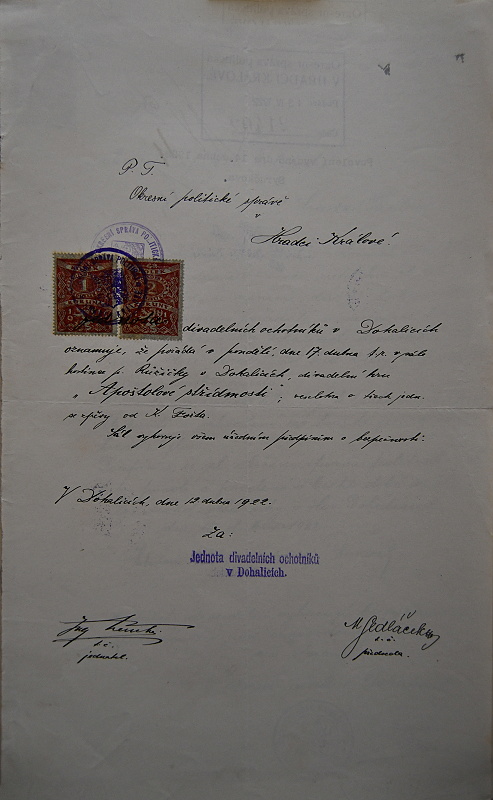 P. T.
Okresní politické správě
v
Hradci Králové.
divadelních ochotníků v Dohalicích
oznamuje, že pořádá v pondělí, dne 17. dubna t. r. v sále
hostince p. Růžičky v Dohalicích, divadelní hru
„Apoštolové střídmosti", veselohra o třech jedn.
se zpěvy od K. Foita.
Sál vyhovuje všem úředním předpisům o bezpečnosti.
V Dohalicích, dne 12. dubna 1922.
Za:
Jednota divadelních ochotníků
v Dohalicích.
M. Sedláček
t. č.
t. č.
jednatel.
předseda.